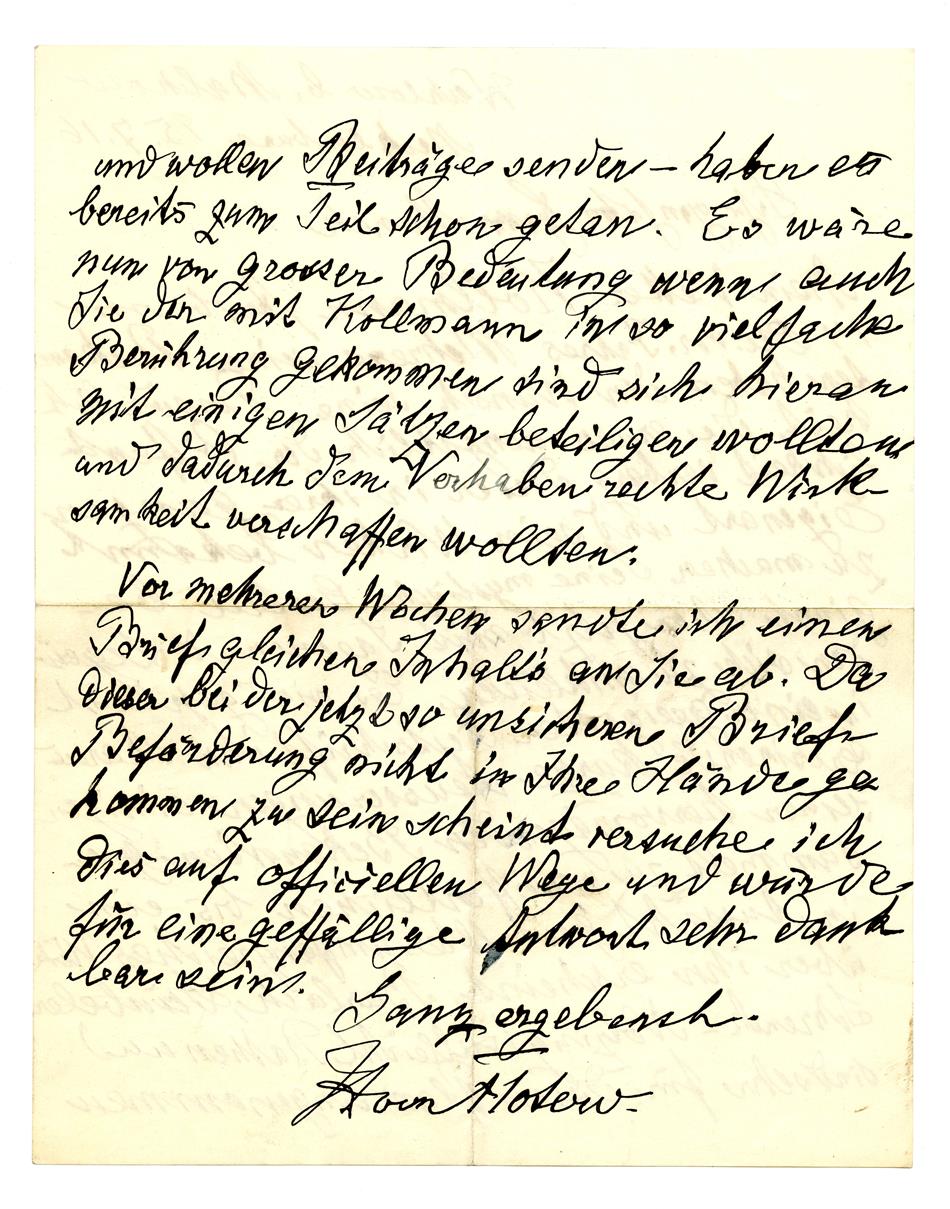 und wollen Beiträge senden – haben es
bereits zum Teil schon getan. Es wäre
nun von grosser Bedeutung wenn auch
Sie der mit Kollmann in so vielfache
Berührung gekommen sind sich hieran
mit einigen Sätzen beteiligen wollten
und dadurch dem Vorhaben rechte Wirk-
samkeit verschaffen wollten.
Vor mehreren Wochen sandte ich einen
Brief gleichen Inhalts an Sie ab. Da
dieser bei der jetzt so unsicheren Brief
Beförderung nicht in Ihre Hände ge
kommen zu sein scheint versuche ich
dies auf officiellen Wege und würde
für eine geffällige Antwort sehr dank
bar sein.
Ganz ergebenst.
von Flotow.